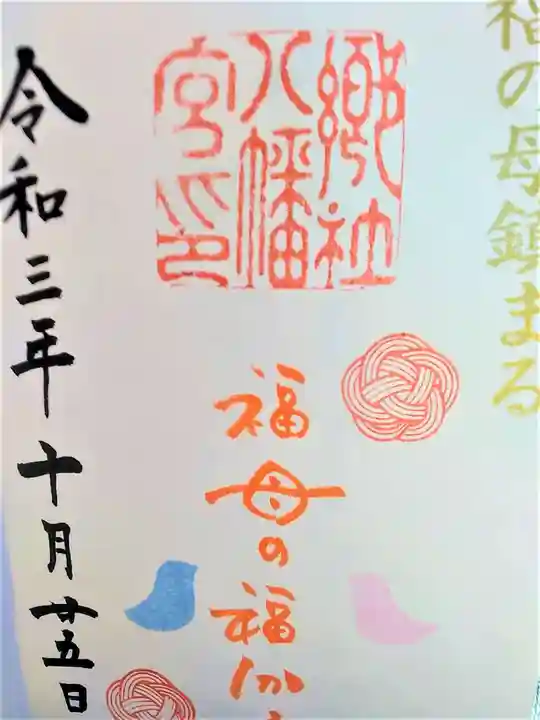 福の母鎮まる
郷社
八幡
宮印
福母の福か
令和三年十月廿五日